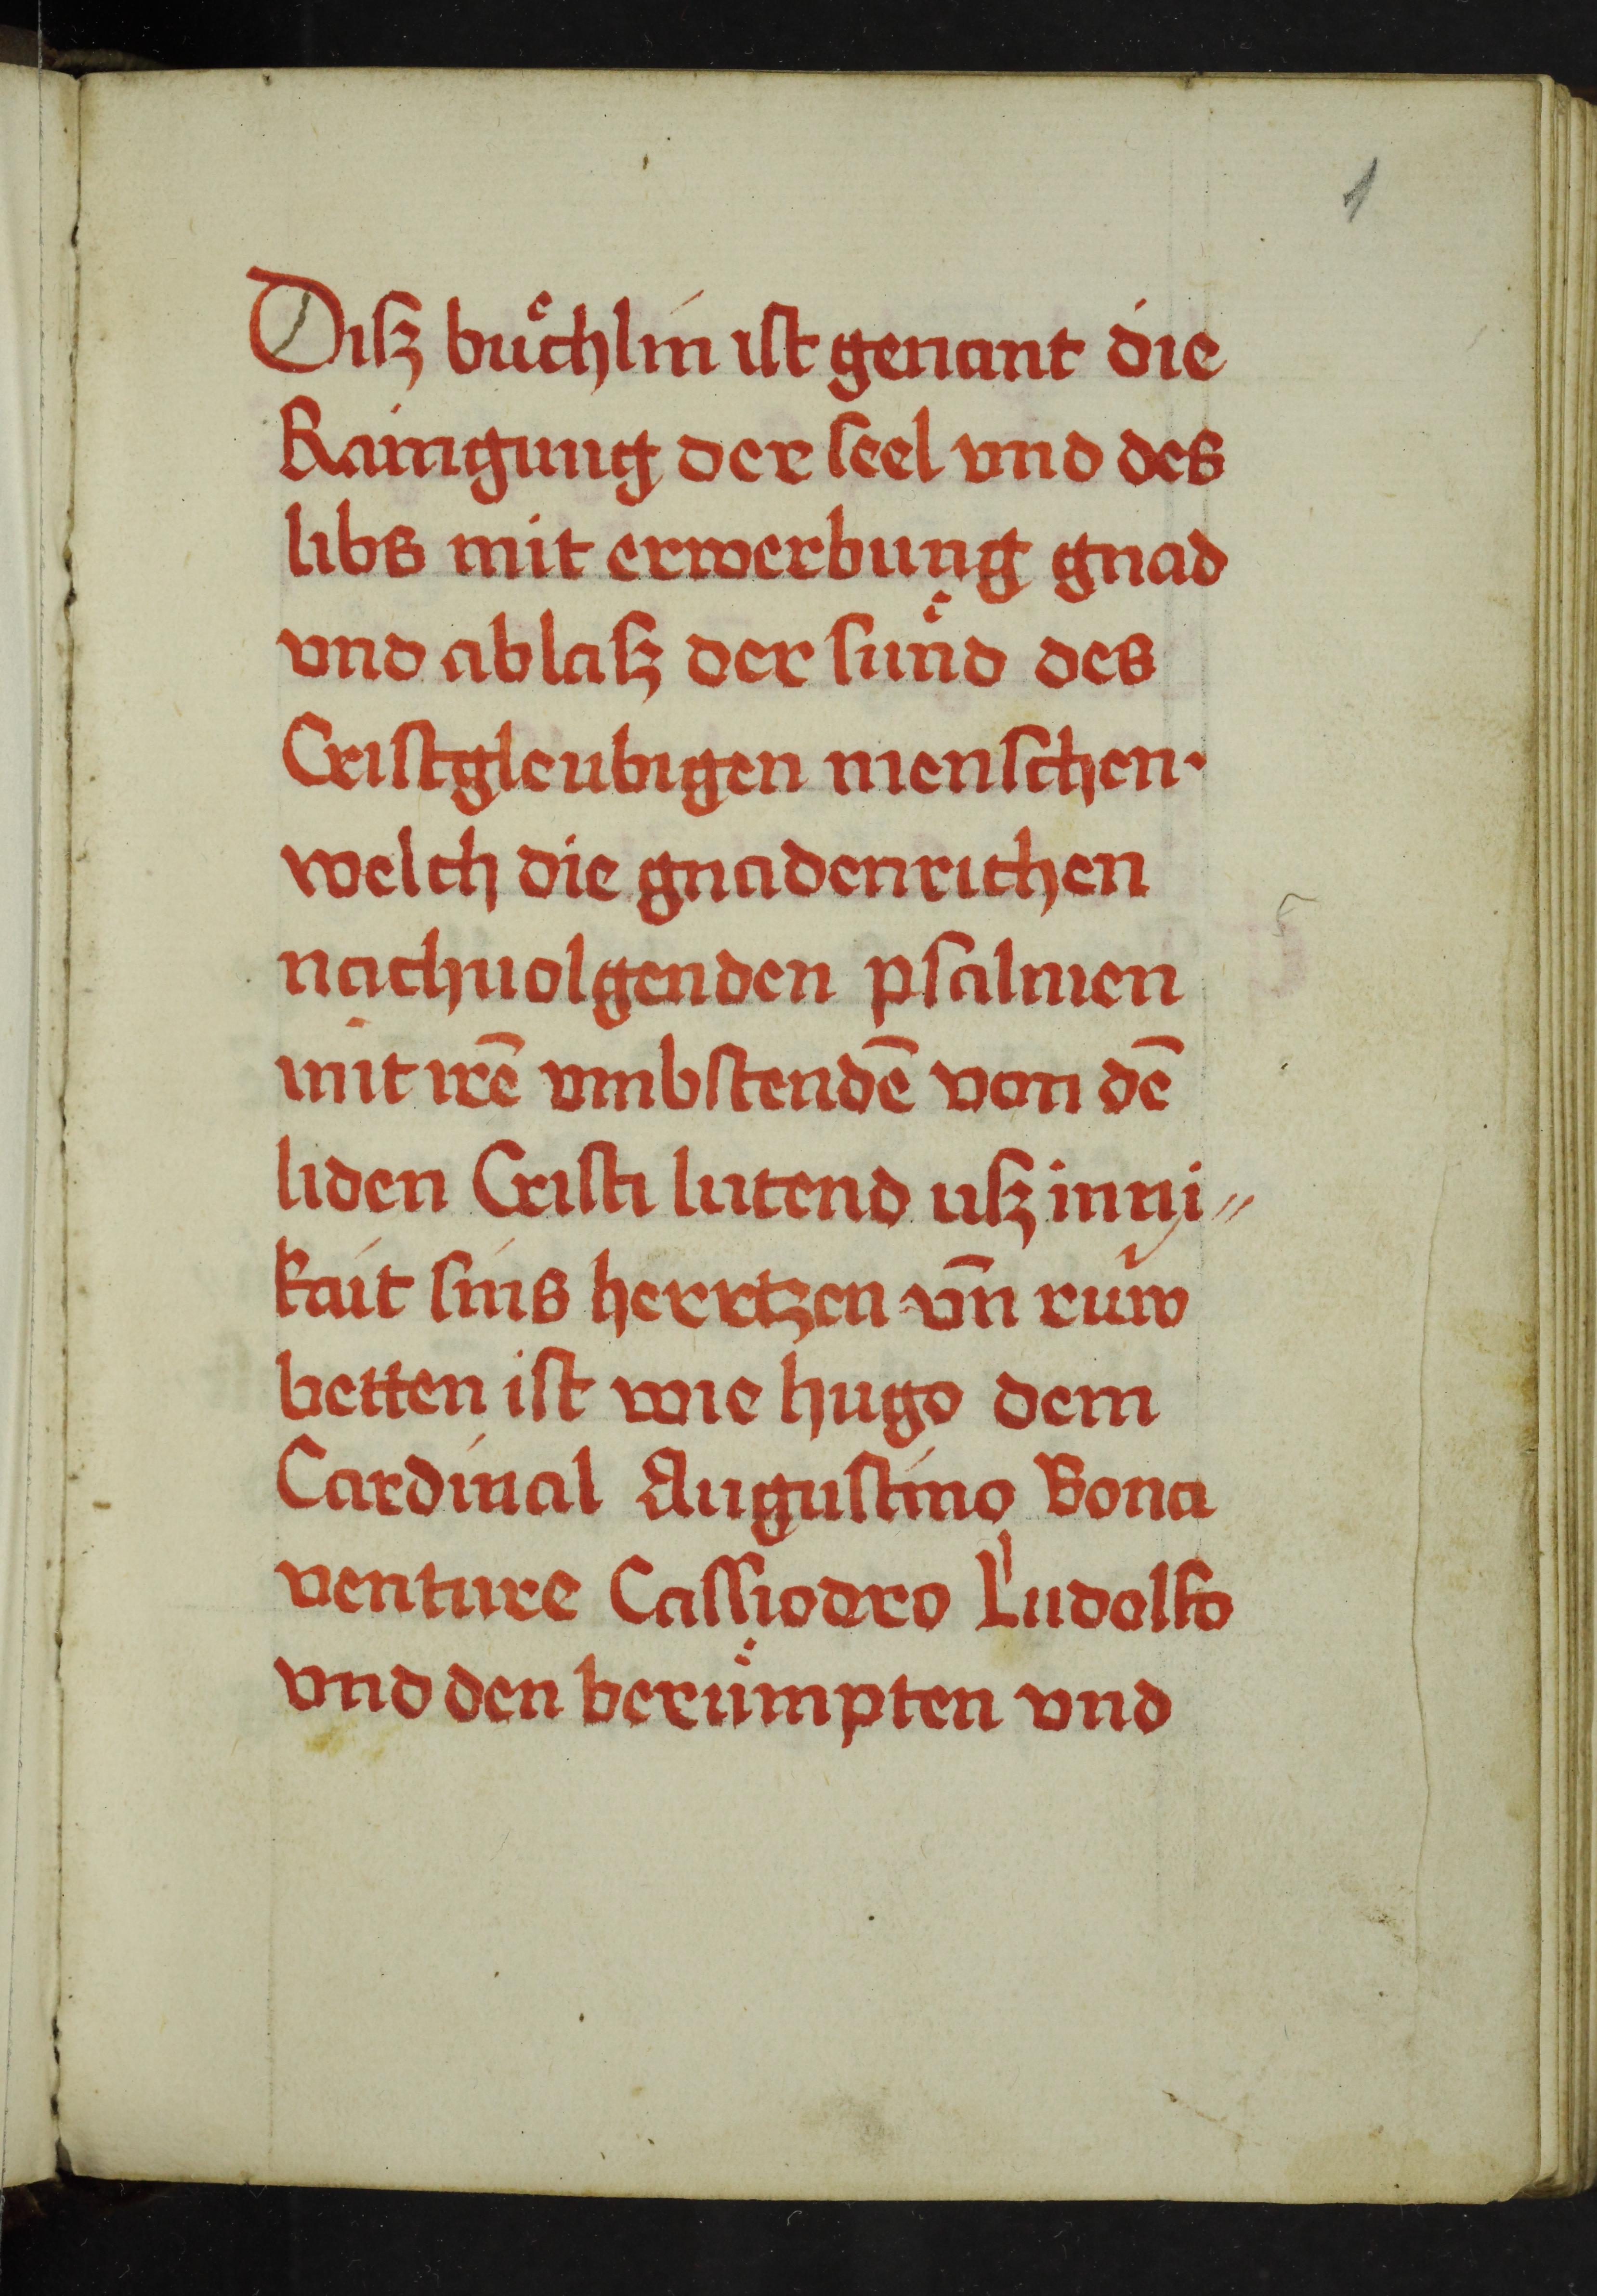 1
Diſz buͤchlin iſt genant die
Rainigung der ſeel vnd des
libs mit erwerbung gnad
vnd ablaſz der ſuͤnd des
Criſtgleubigen menſchen·
welch die gnadenrichen
nachuolgenden pſalmen
mit irē vmbſtendē von dē
liden Criſti lutend uſz inni⸗
kait ſins herrtzen vn̄ ruw
betten iſt wie hugo dem
Cardinal Auguſtino Bona
venture Caſſiodro Ludolfo
vnd den beruͤmpten vnd